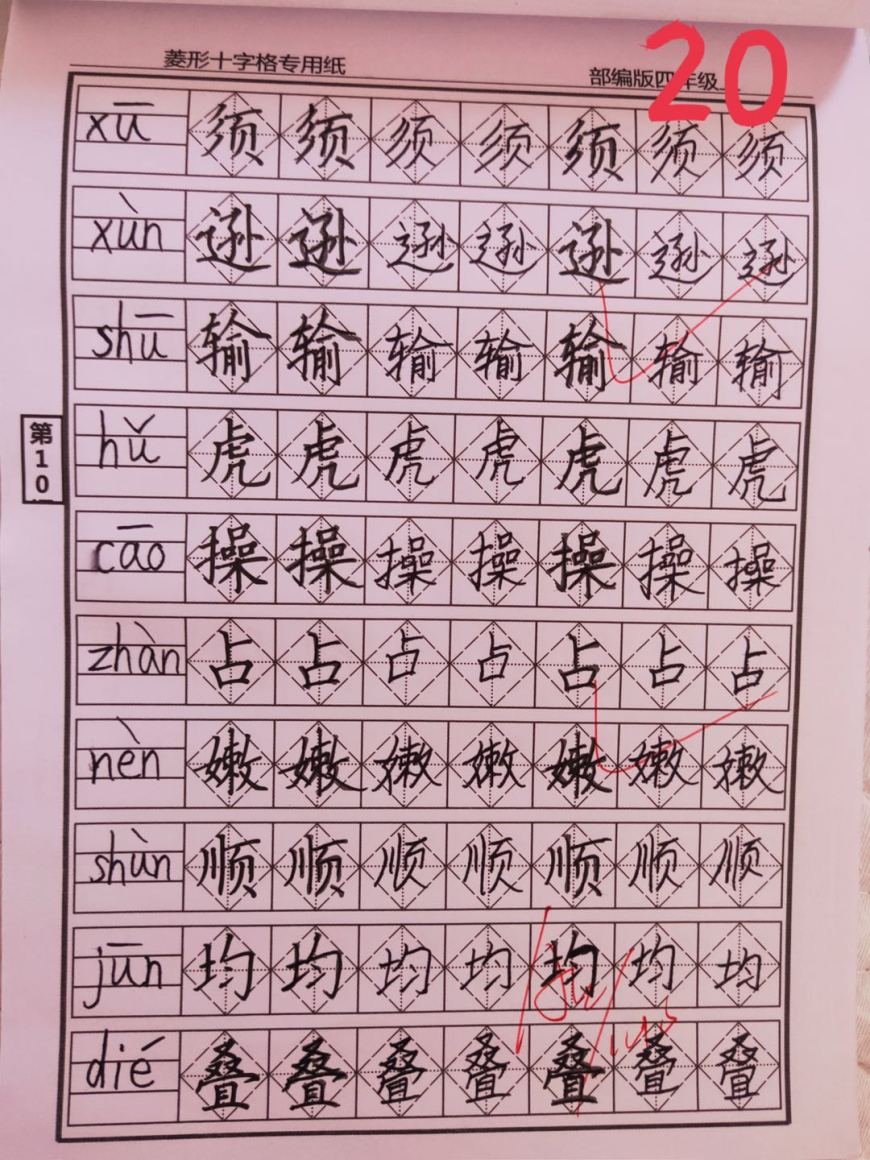 20
菱形十字格专用纸 部编版四年级
xū 须 须 须 须 须 须 须
xùn 逊 逊 逊 逊 逊 逊 逊
shū 输 输 输 输 输 输 输
hǔ 虎 虎 虎 虎 虎 虎 虎
第10
cāo 操 操 操 操 操 操 操
zhàn 占 占 占 占 占 占 占
nèn 嫩 嫩 嫩 嫩 嫩 嫩 嫩
shùn 顺 顺 顺 顺 顺 顺 顺
jūn 均 均 均 均 均 均 均
dié 叠 叠 叠 叠 叠 叠 叠